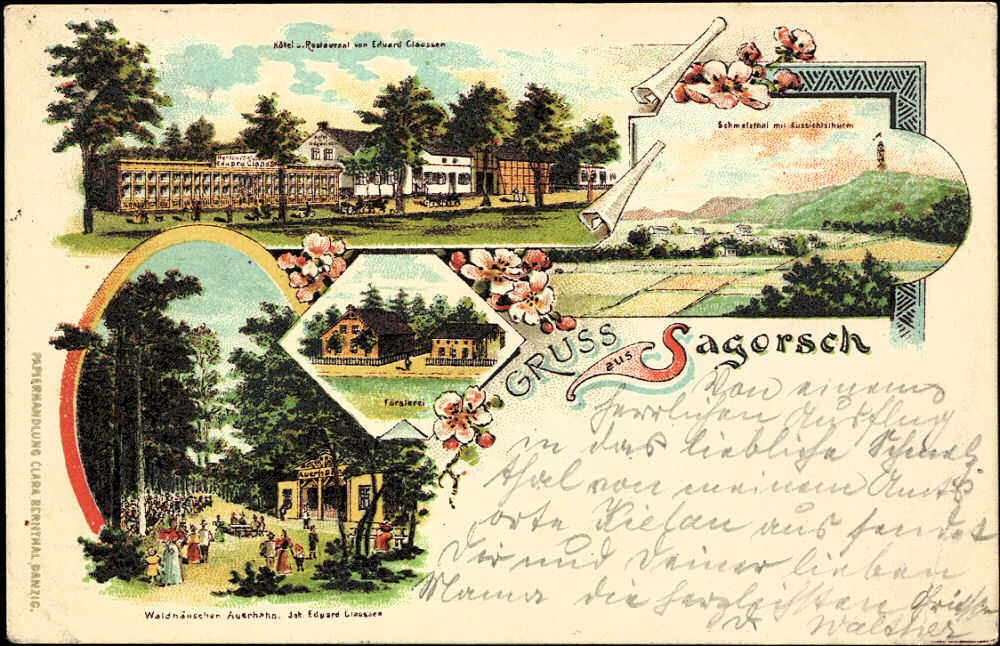 Hôtel u. Restaurant von Eduard Claassen
Restaurant
Eduard Claassen
Schmelzthal mit Aussichtsthurm
Försterei
GRUSS aus Sagorsch
Auerhahn
Waldhäuschen Auerhahn. Inh. Eduard Claassen
PAPIERHANDLUNG CLARA BERNTHAL, DANZIG.
Von einem
herrlichen Ausflug
in das liebliche Schmelz
thal von meinem Amts
orte Kielau aus sendet
Dir und Deiner lieben
Mama die herzlichsten Grüsse
D. Walther